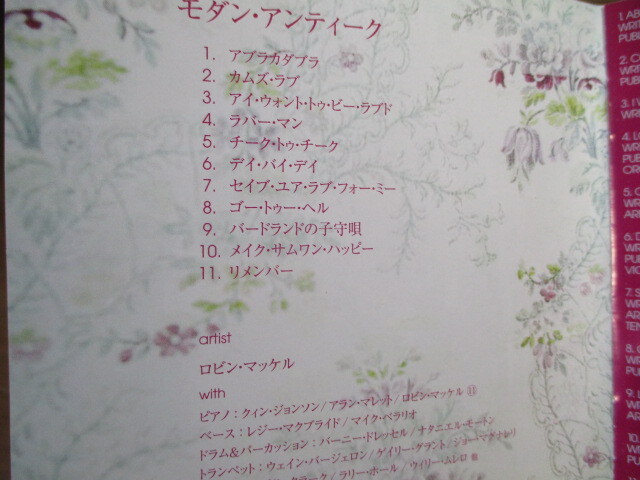 モダン・アンティーク
1. アブラカダブラ
2. カムズ・ラブ
3. アイ・ウォント・トゥ・ビー・ラブド
4. ラバー・マン
5. チーク・トゥ・チーク
6. デイ・バイ・デイ
7. セイブ・ユア・ラブ・フォー・ミー
8. ゴー・トゥー・ヘル
9. バードランドの子守唄
10. メイク・サムワン・ハッピー
11. リメンバー
artist
ロビン・マッケル
with
ピアノ：クィン・ジョンソン/アラン・マレット/ロビン・マッケル⑪
ベース：レジー・マクブライド/マイク・ベラリオ
ドラム&パーカッション：バーニー・ドレッセル/ナタニエル・モートン
トランペット：ウェイン・バージェロン/ゲイリー・グラント/ジョー・マグナレリ
クラーク/ラリー・ホール/ウィリー・ムレロ 他
1. AB
WRIT
PUBL
2. C
WRI
PUB
3. I
WR
4. I
WR
PU
OR
5. C
WR
AR
6. D
WR
PU
VIC
7. S
WR
AR
TEN
8.
WR
PU
9.
WR
AR
10.
W
PU